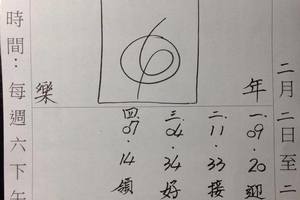 二月二日至二
年
樂
一. 09.20 迎
二. 11.33 接
三. 04.34 好
四. 07.14 領
時間：每週六下午